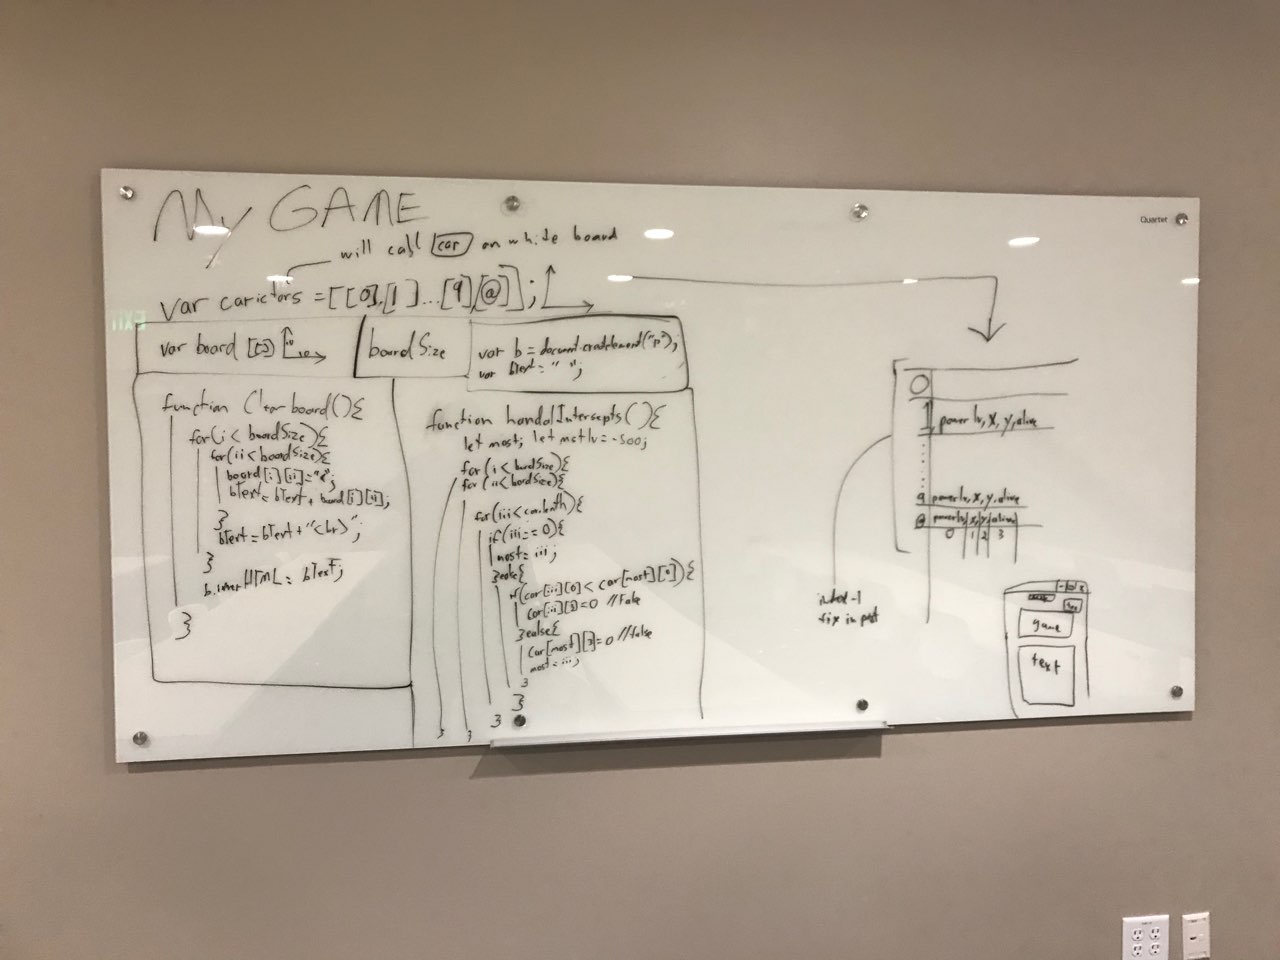 My GAME
Quartet
will call car on white board
var carictors = [[0],[1]...[9],[@]];
EXIT
var board [[]]
10
10
boardSize
var b = document.createElement("p");
var bText = " ";
function Clearboard(){
for(i < boardSize){
for(ii < boardSize){
board[i][ii] = "x";
bText = bText + board[i][ii];
}
bText = bText + "<br>";
}
b.innerHTML = bText;
}
function handalIntersepts(){
let most; let mstlv = -500;
for(i < bordSize{
for(ii < bordSize{
for(iii <
if(iii == 0){
most = iii;
}else{
if(car[iii][0] < car[most][0]){
car[iii][3] = 0 //False
}else{
car[most][3] = 0 //false
most = iii;
}
}
}
}
}
0
1 powerlv, x, y, alive
9 powerlv, x, y, alive
@ powerlv x, y, alive
0 1 2 3
index-1
fix in post
game
text